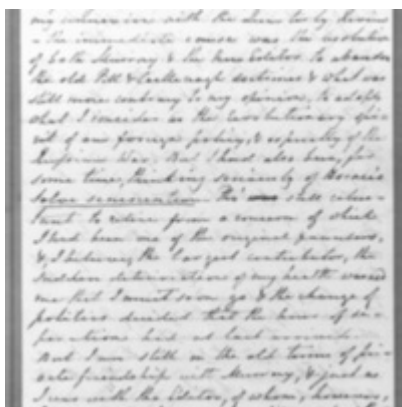 my connexion with the
& the immediate cause was the resolution
of both Murray & the new Editor to abandon
the old Pitt & Castlereagh doctrines & what was
still more contrary to my opinion, to adopt
what I consider as the revolutionary spi-
rit of our foreign policy, & especially of the
Russian War. But I had also been, for
some time, thinking seriously of Horace's
solve senescentem. Tho' still reluc-
tant to retire from a concern of which
I had been one of the original founders,
& I believe, the largest contributor, the
sudden deterioration of my health warned
me that I must soon go & the change of
politics decided that the hour of se-
paration had at last arrived.
But I am still on the old terms of pri-
vate friendship with Murray, & just as
I was with the Editor, of whom, however,